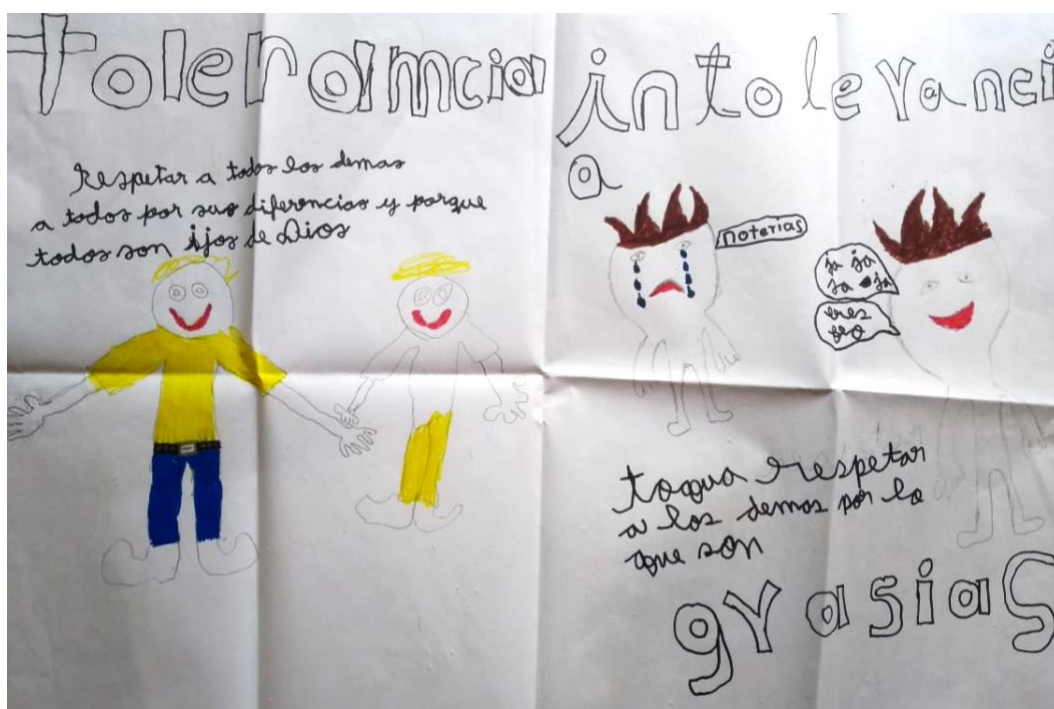 toleramcia
Respetar a todos los demas
a todos por sus diferencias y porque
todos son ijos de Dios
intoleranci
a
noterias
ja ja
ja ja
eres
feo
toqua respetar
a los demas por lo
que son
grasias